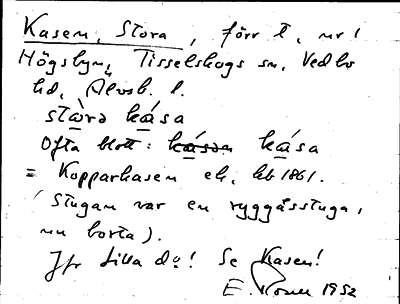 Kasen, Stora, förr t, nr 1
Högsbyn, Tisselskogs sn, Vedbo
hd, Älvsb. l.
stὼrə kása
Ofta blott: kásən kása
= Kopparkasen ek. kb 1861.
(Stugan var en ryggåsstuga,
nu borta).
Jfr Lilla do! Se Kasen!
E. 1952